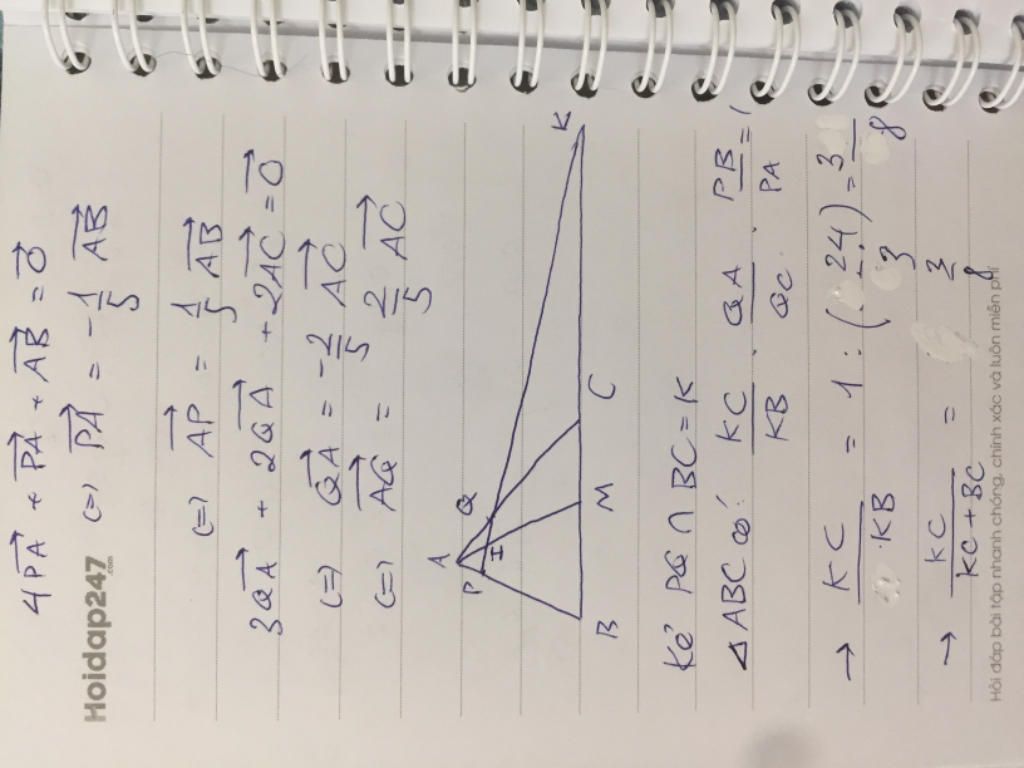 4PA→ + PA→ + AB→ = 0→
Hoidap247
.com
(=) PA→ = -1/5 AB→
(=) AP→ = 1/5 AB→
3QA→ + 2QA→ + 2AC→ = 0→
(=) QA→ = -2/5 AC→
(=) AQ→ = 2/5 AC→
A
P
Q
I
B M C K
Kẻ PQ ∩ BC = K
△ABC có: KC/KB . QA/QC . PB/PA = 1
→ KC/KB = 1 : (2/3 . 4) = 3/8
→ KC/(KC + BC) = 3/8
Hỏi đáp bài tập nhanh chóng, chính xác và luôn miễn phí